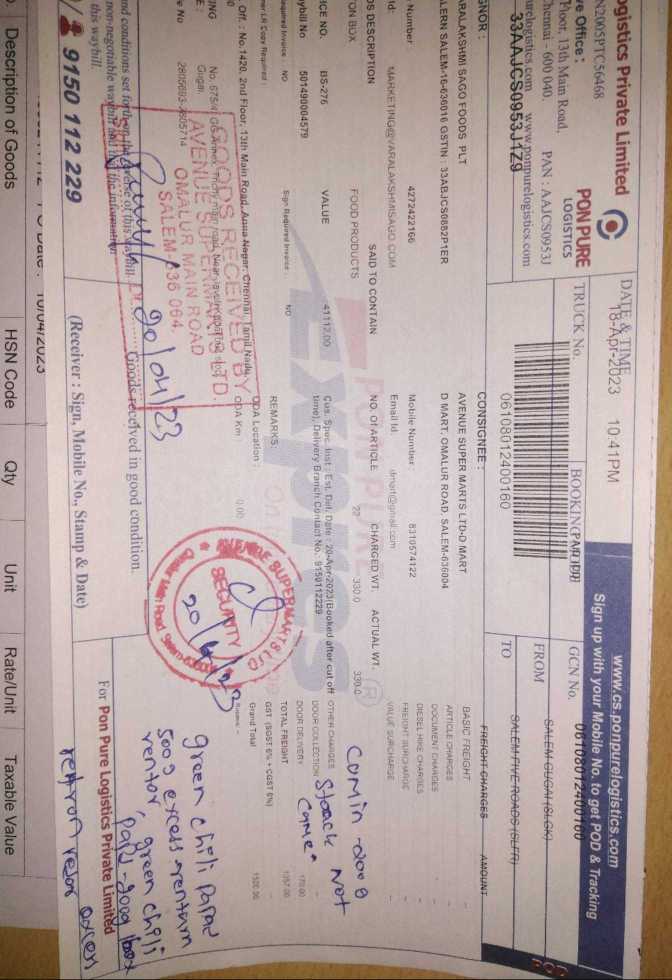 ogistics Private Limited
N2005PTC56468
ve Office :
Floor, 13th Main Road,
hennai - 600 040.
PAN : AAJCS0953J
urelogistics.com www.ponpurelogistics.com
33AAJCS0953J1Z9
PON PURE
LOGISTICS
DATE & TIME
18-Apr-2023 10:41PM
TRUCK No.
06108012400160
BOOKING
www.cs.ponpurelogistics.com
Sign up with your Mobile No. to get POD & Tracking
GCN No.
06108012400160
FROM
SALEM-GUGAI(SLGK)
TO
SALEM-FIVE ROADS(SLFR)
POD
GNOR :
ARALAKSHMI SAGO FOODS PLT
LERN SALEM-16-636016 GSTIN : 33ABJCS0882P1ER
Number : 4272422166
Id: MARKETING@VARALAKSHMISAGO.COM
CONSIGNEE :
AVENUE SUPER MARTS LTD-D MART
D MART, OMALUR ROAD, SALEM-636004
Mobile Number : 8310574122
Email Id: dmart@gmail.com
DS DESCRIPTION SAID TO CONTAIN NO. Of ARTICLE CHARGED WT. ACTUAL WT.
TON BOX FOOD PRODUCTS 22 330.0 330.0
ICE NO. BS-276 VALUE 41112.00
Cus. Spec. Inst : Est. Del. Date : 20-Apr-2023(Booked after cut off
time), Delivery Branch Contact No.: 9150112229
ybill No 501490004579
equired Invoice : NO Sign Required Invoice : NO
er LR Copy Required :
REMARKS:
Off. : No.1420, 2nd Floor, 13th Main Road, Anna Nagar, Chennai, Tamil Nadu
ODA Location :
ODA Km : 0.00
Gugai,
e No 2805693-2805714
FREIGHT CHARGES AMOUNT
BASIC FREIGHT -
ARTICLE CHARGES -
DOCUMENT CHARGES -
DIESEL HIKE CHARGES -
FREIGHT SURCHARGE -
VALUE SURCHARGE -
OTHER CHARGES
DOOR COLLECTION -
DOOR DELIVERY 170.00
TOTAL FREIGHT 1357.00
GST (SGST 6% + CGST 6%)
Grand Total 1520.00
PON PURE
Express
GOODS RECEIVED BY
AVENUE SUPERMARTS LTD.
OMALUR MAIN ROAD
SALEM-636 064.
20/04/23
AVENUE SUPERMARTS LTD
SECURITY
20/4/23
Cumin -200g
Stock Not
Came.
green chili Papad
500g excess
green chili
Papd -200g 1box
nd conditions set forth on the reverse of this waybill.
non-negotiable waybill and that the information
this waybill.
Goods received in good condition.
9150 112 229
(Receiver : Sign, Mobile No., Stamp & Date)
For Pon Pure Logistics Private Limited
PO Date : 10/04/2023
o. Description of Goods HSN Code Qty Unit Rate/Unit Taxable Value